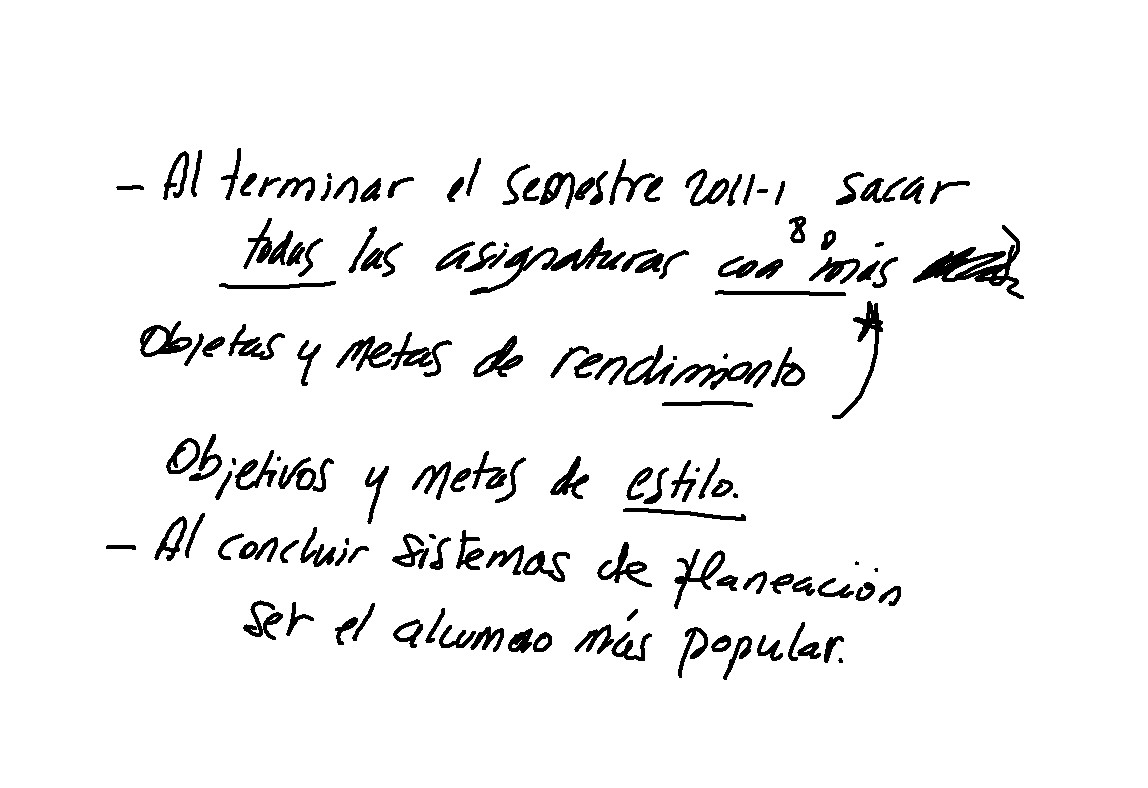 - Al terminar el semestre 2011-1 sacar
todas las asignaturas con 8 o más
Objetas y metas de rendimiento
Objetivos y metas de estilo.
- Al concluir sistemas de planeación
ser el alumno más popular.